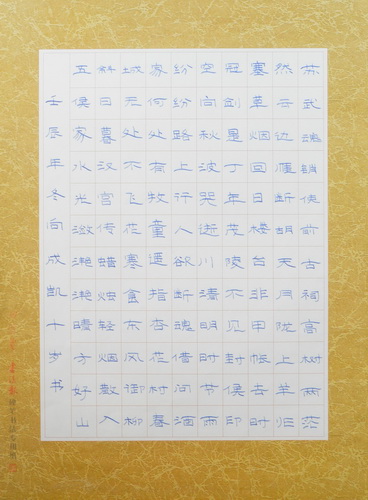 苏武魂销使前古祠高树两茫
然云边雁断胡天月陇上羊归
塞草烟回日楼台非甲帐去时
冠剑是丁年茂陵不见封侯印
空向秋波哭逝川清明时节雨
纷纷路上行人欲断魂借问酒
家何处有牧童遥指杏花村春
城无处不飞花寒食东风御柳
斜日暮汉宫传蜡烛轻烟散入
五侯家水光潋滟滟晴方好山
壬辰年冬向成凯十岁书